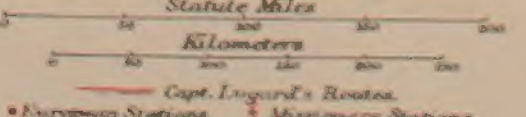 Statute Miles
0 50 100 150 200
Kilometers
0 50 100 150 200 250
Capt. Lugard's Routes
European Stations Missionary Stations